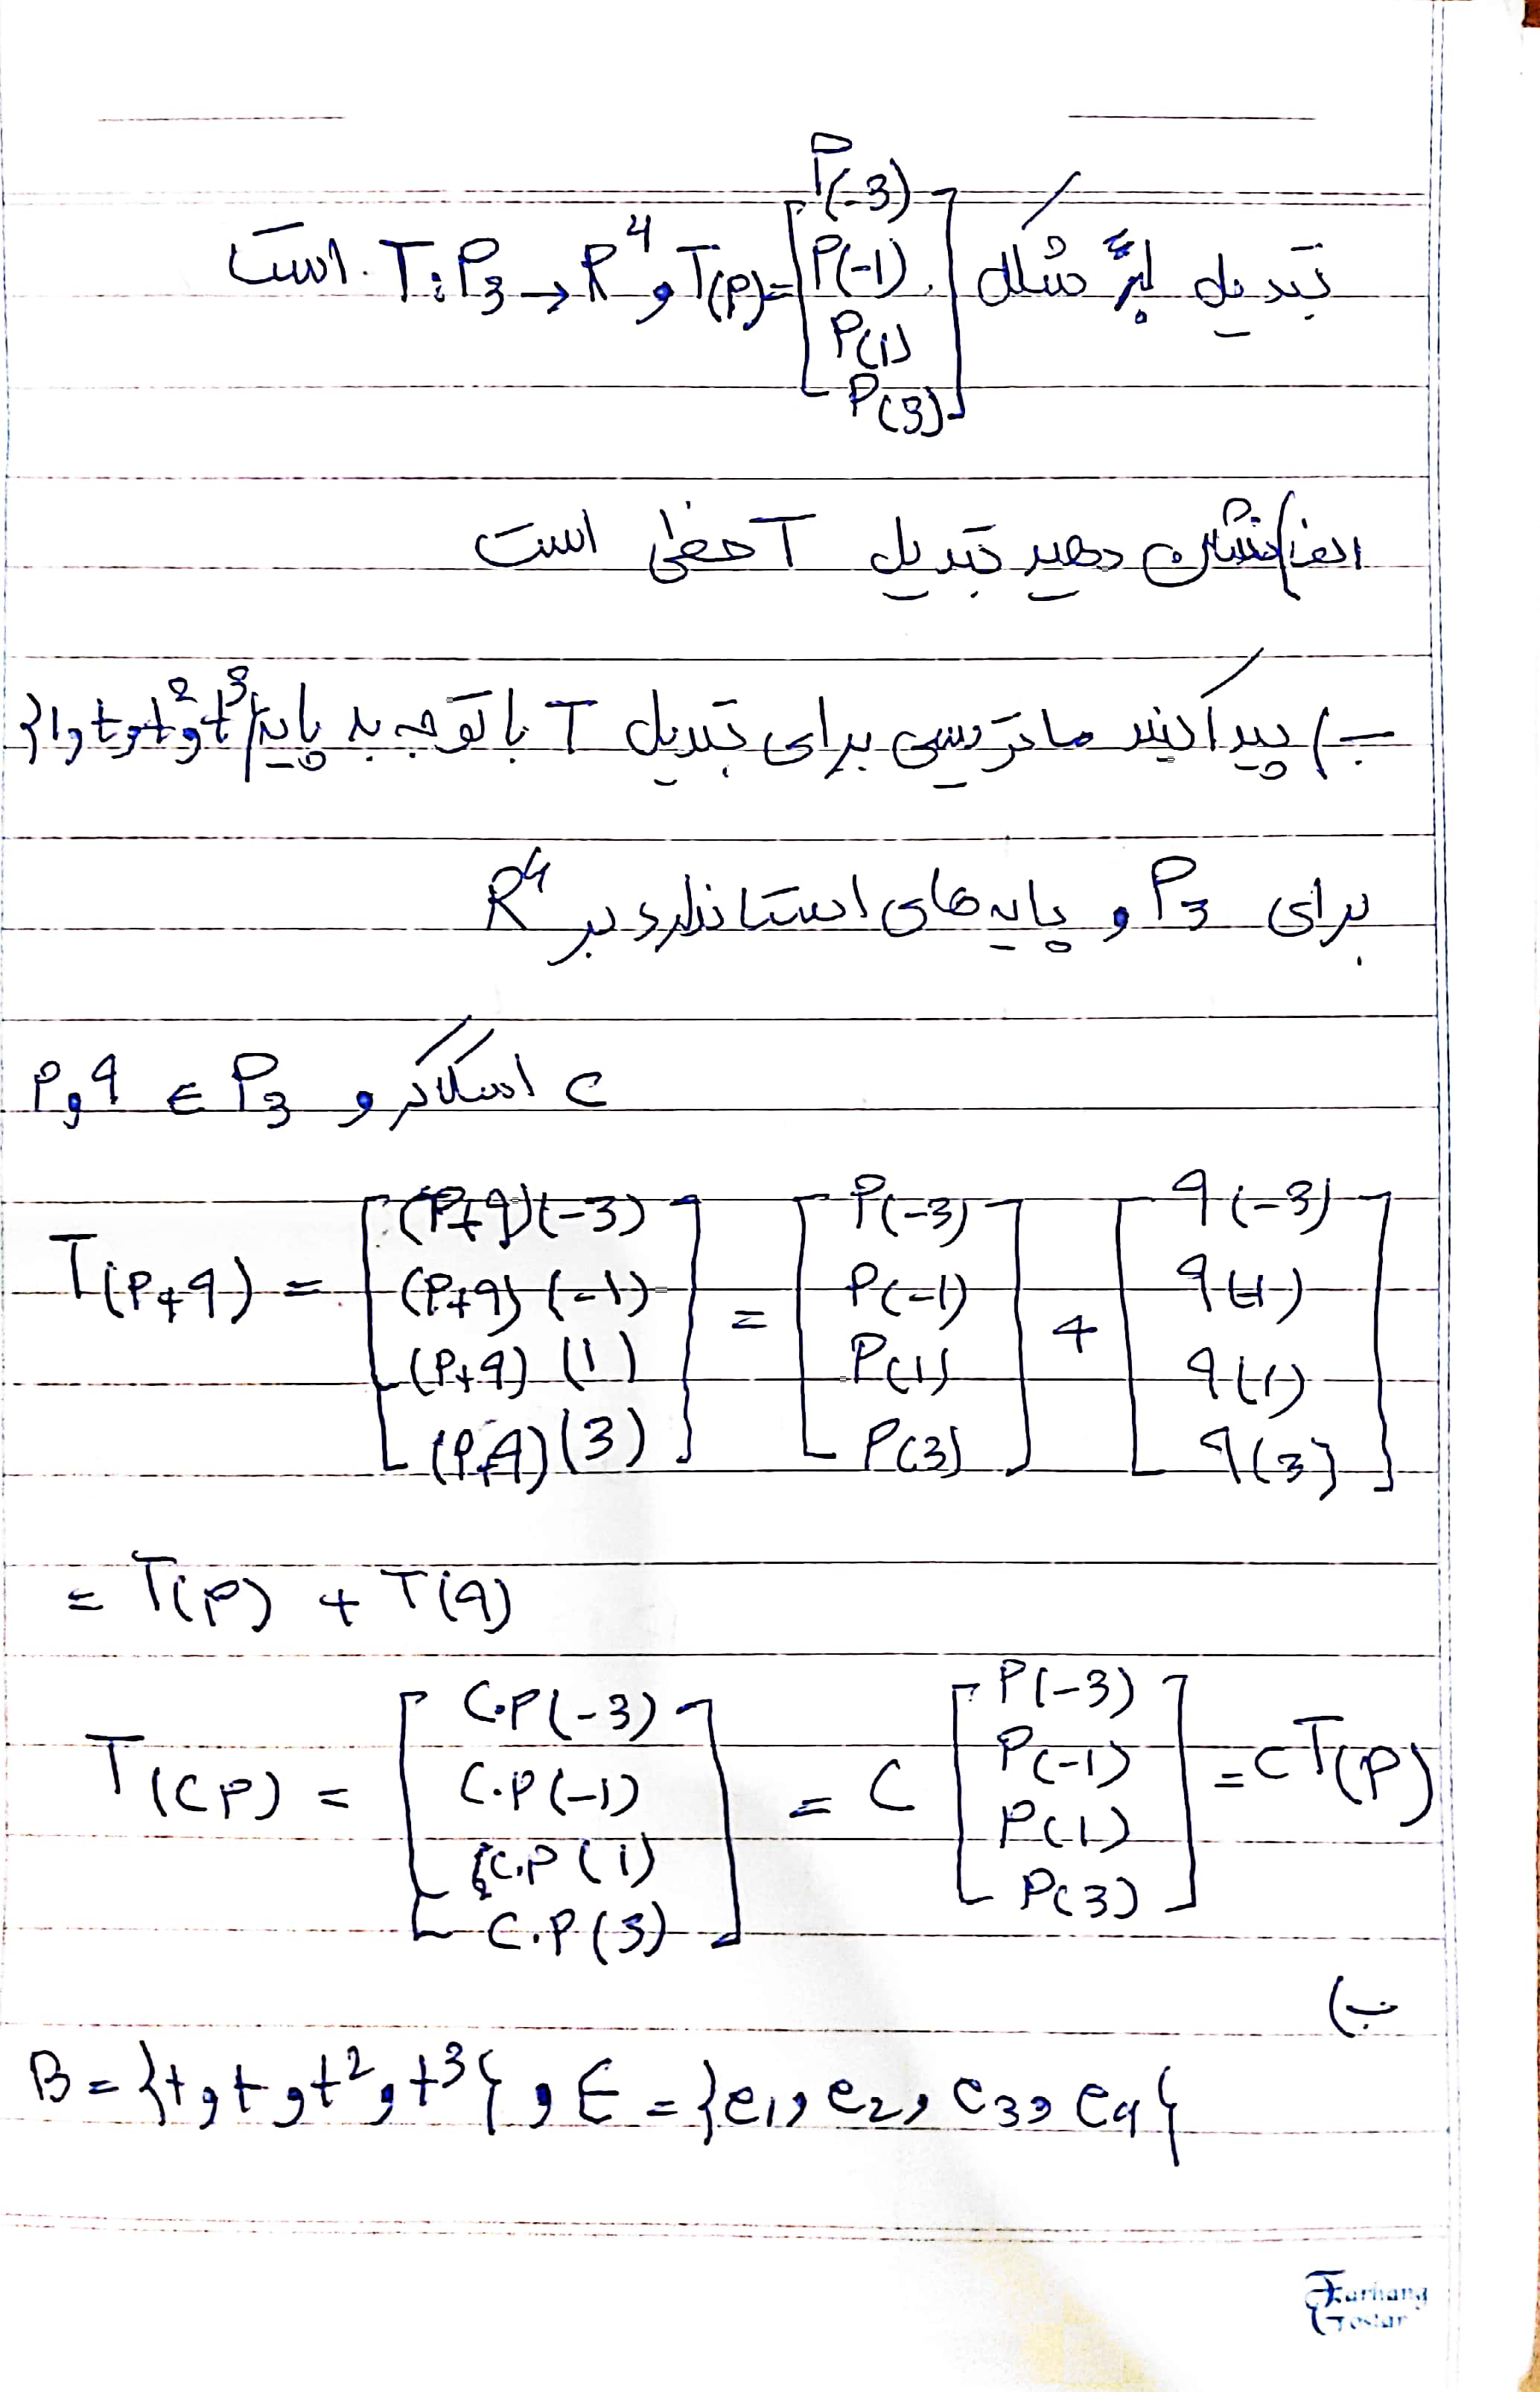 تبدیل اگر شکل T(p)=[P(-3) P(-1) P(1) P(3)] و T: P3 → R^4 است.
الف) نشان دهید تبدیل T خطی است
ب) پیدا کنید ماتریسی برای تبدیل T با توجه به پایه {1, t, t^2, t^3}
برای P3 و پایه های استاندارد بر R^4
c اسکالر و P, q ∈ P3
T(P+q) = [(P+q)(-3) (P+q)(-1) (P+q)(1) (P+q)(3)] = [P(-3) P(-1) P(1) P(3)] + [q(-3) q(-1) q(1) q(3)]
= T(P) + T(q)
T(cP) = [C.P(-3) C.P(-1) C.P(1) C.P(3)] = C [P(-3) P(-1) P(1) P(3)] = cT(P)
ب)
B = {t, t, t^2, t^3}, E = {e1, e2, e3, e4}
Farhang
Gostar